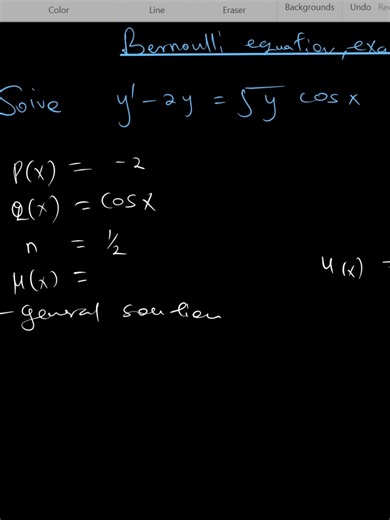 Color Line Eraser Backgrounds Undo Re
Bernoulli equation, exa
Solve y' - 2y = √y cos x
P(x) = -2
Q(x) = cos x
n = 1/2
μ(x) =
μ(x) =
- general solution